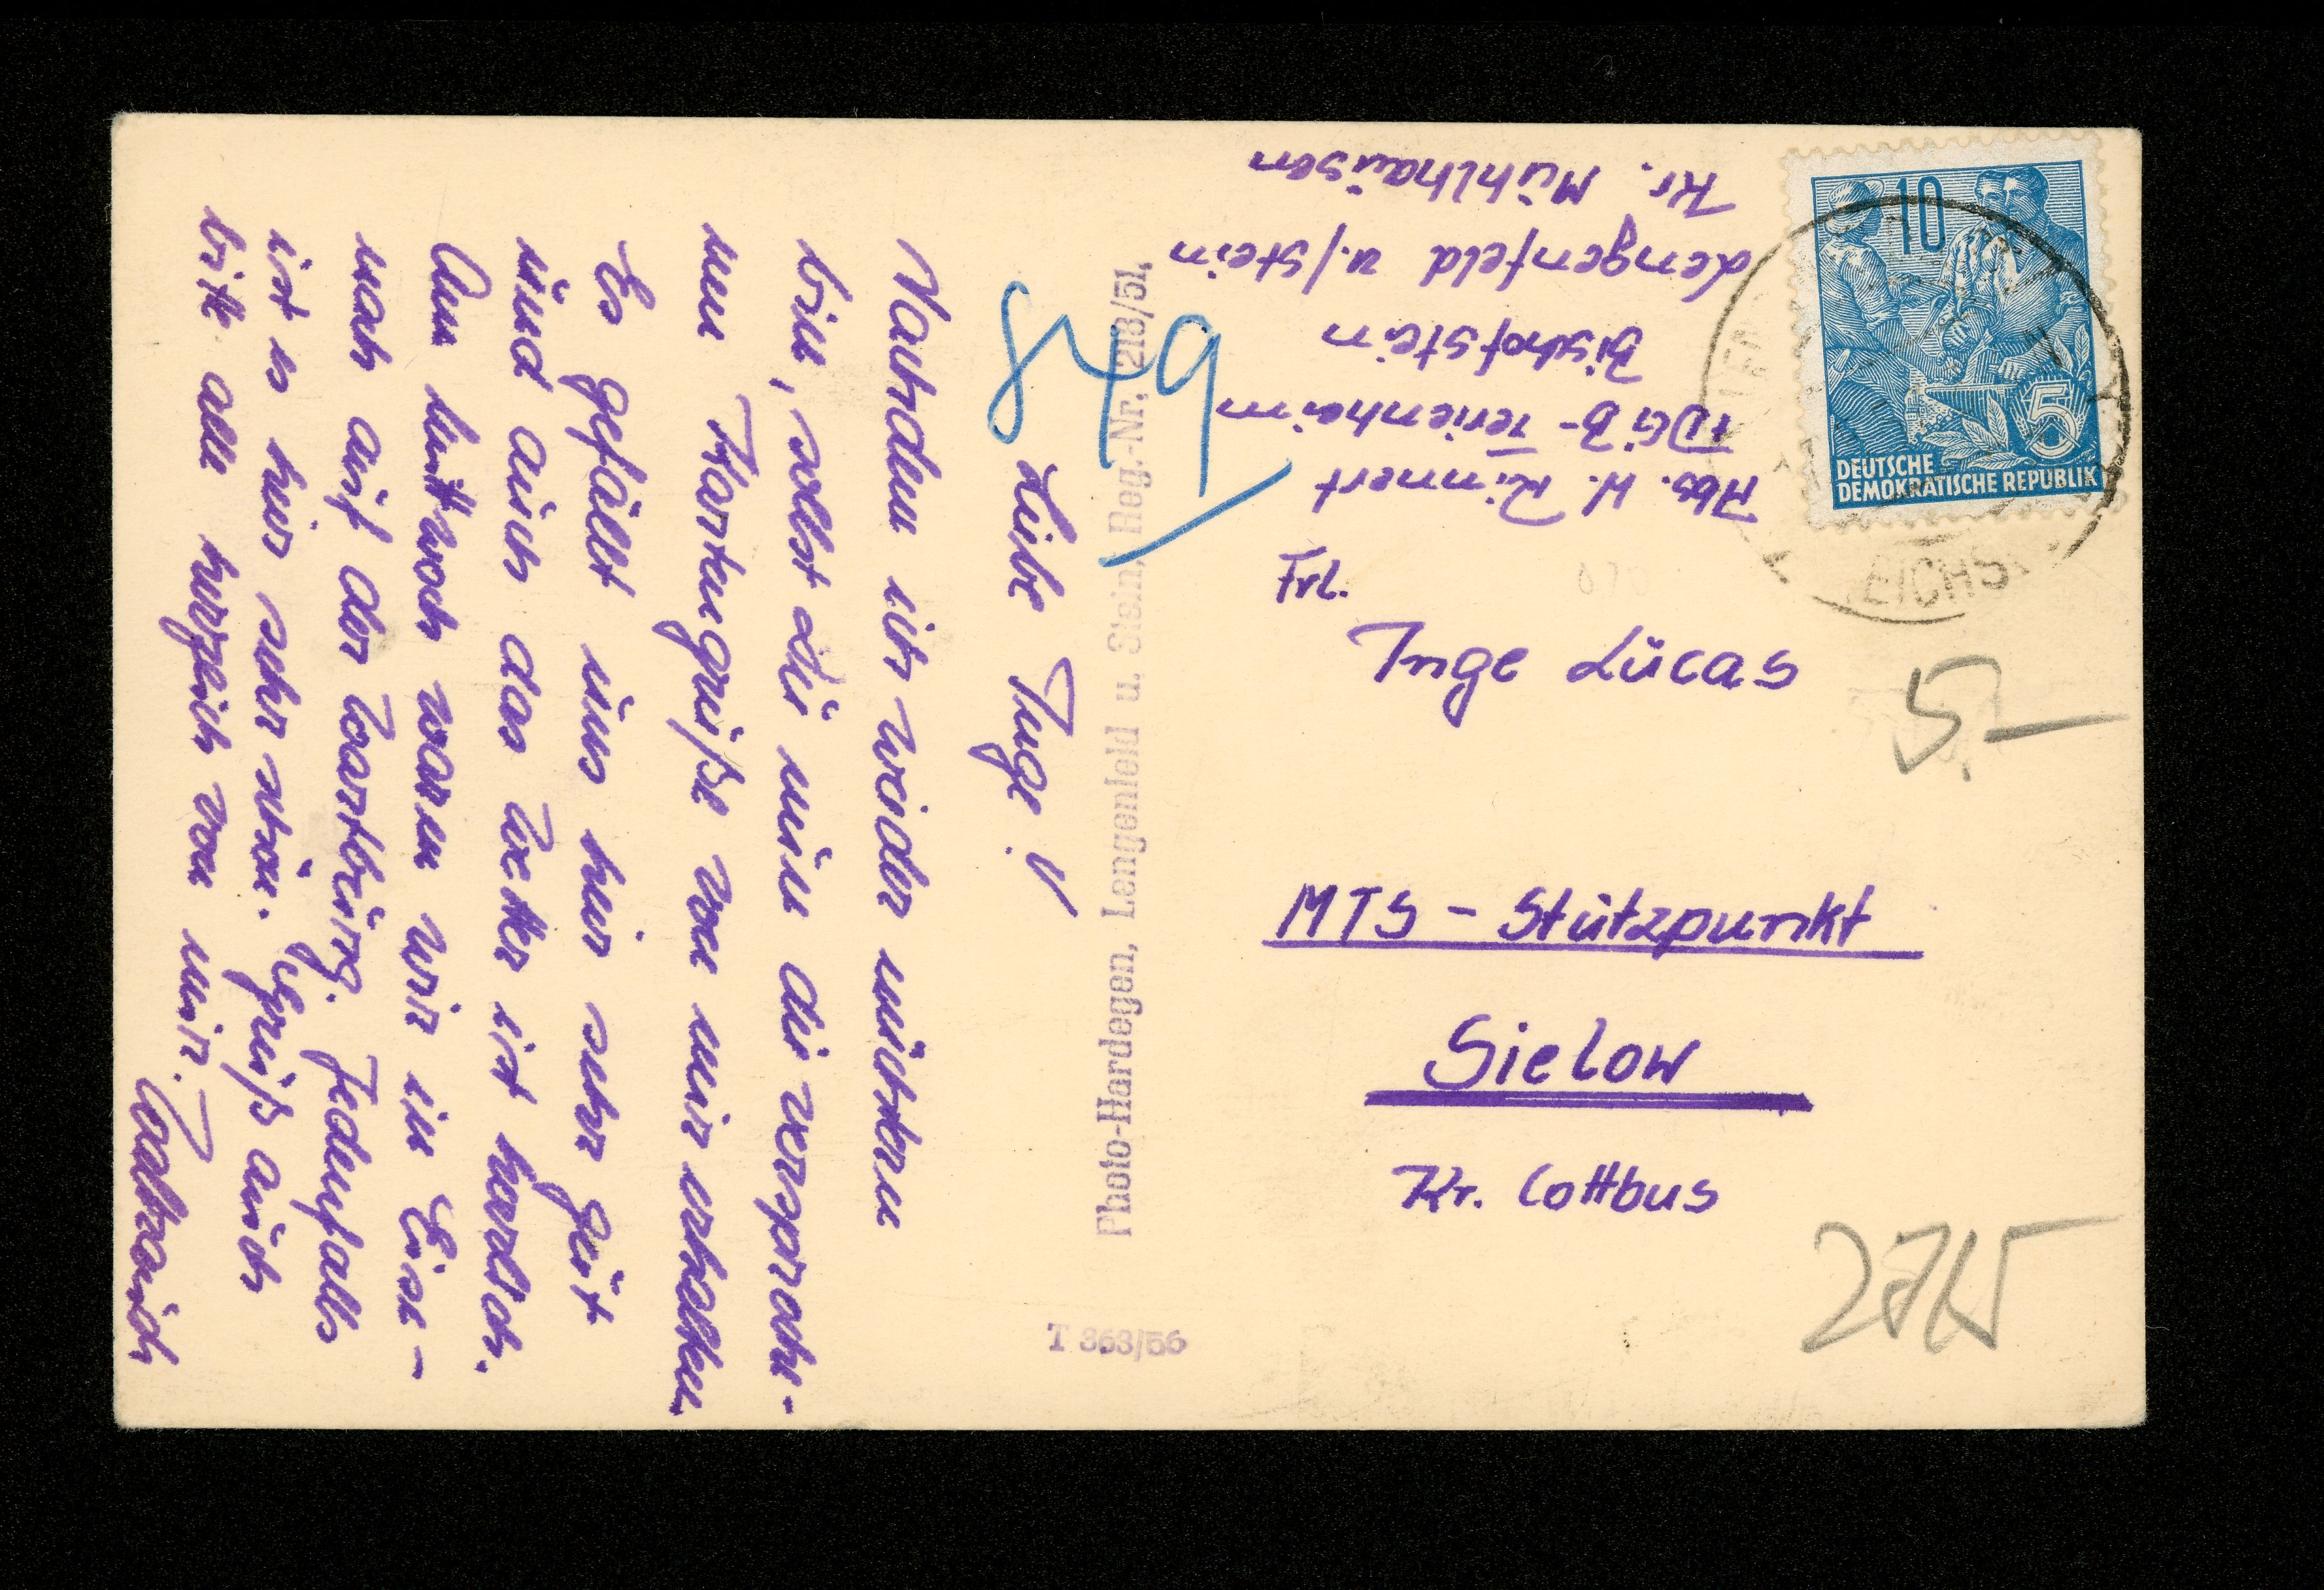 Liebe Inge!
Nachdem ich wieder nüchtern
bin, sollst Du nun die versproche-
nen Kartengrüße von mir erhalten.
Es gefällt uns hier sehr gut
und auch das Wetter ist herrlich.
Am Mittwoch waren wir in Eise-
nach auf der Wartburg. Jedenfalls
ist es hier sehr schön. Grüß auch
bitte alle herzlich von mir.
Photo-Hardegen, Lengenfeld u. Stein, Reg.-Nr. 218/51,
T 363/56
849
Abs. W. Rimmert
FDGB-Ferienheim
Bischofstein
Lengenfeld u./Stein
Kr. Mühlhausen
10
5
DEUTSCHE
DEMOKRATISCHE REPUBLIK
Frl.
Inge Lucas
MTS - Stützpunkt
Sielow
Kr. Cottbus
5.-